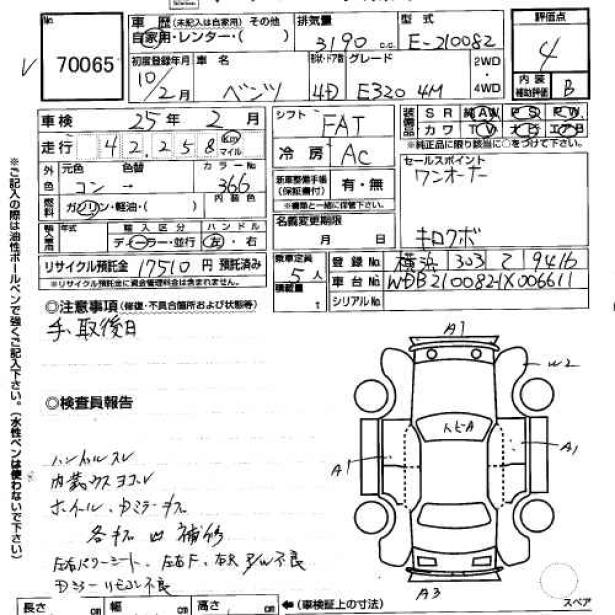 No. 70065
車歴 (未記入は自家用) その他
自家用・レンター・( )
排気量 3190 c.c.
型式 E-210082
評価点 4
内装補助評価 B
初度登録年月 10/2月
車名 ベンツ
形状・ドア数 4D
グレード E320 4M
2WD・4WD
車検 25年 2月
走行 42,258 Km マイル
外色 元色 コン 色替 → カラーNo 366
燃料 ガソリン・軽油・( ) 内装色
輸入車用 年式 輸入区分 ディーラー・並行 ハンドル 左・右
リサイクル預託金 17510 円 預託済み
※リサイクル預託金に資金管理料金は含まれません。
シフト FAT
冷房 AC
新車整備手帳(保証書付) 有・無
※書類と一緒に保管下さい。
名義変更期限
月 日
乗車定員 5人
積載量 t
装備品 SR 純AW PS PW
カワ TV ナビ エアB
※純正品に限り該当に○をつけて下さい。
セールスポイント
ワンオーナー
キロクボ
登録No 横浜 303 9416
車台No WDB2100821X006611
シリアルNo
◎注意事項(修復・不具合箇所および状態等)
手、取後日
◎検査員報告
ハンドルスレ
ホイール、
各 凹 補修
左右パワーシート、左右F、右R P/W不良
Dミラーリモコン不良
A1
W2
A1
A1
A3
スペア
長さ cm 幅 cm 高さ cm ←(車検証上の寸法)
※ご記入の際は油性ボールペンで強くご記入下さい。(水性ペンは使わないで下さい)